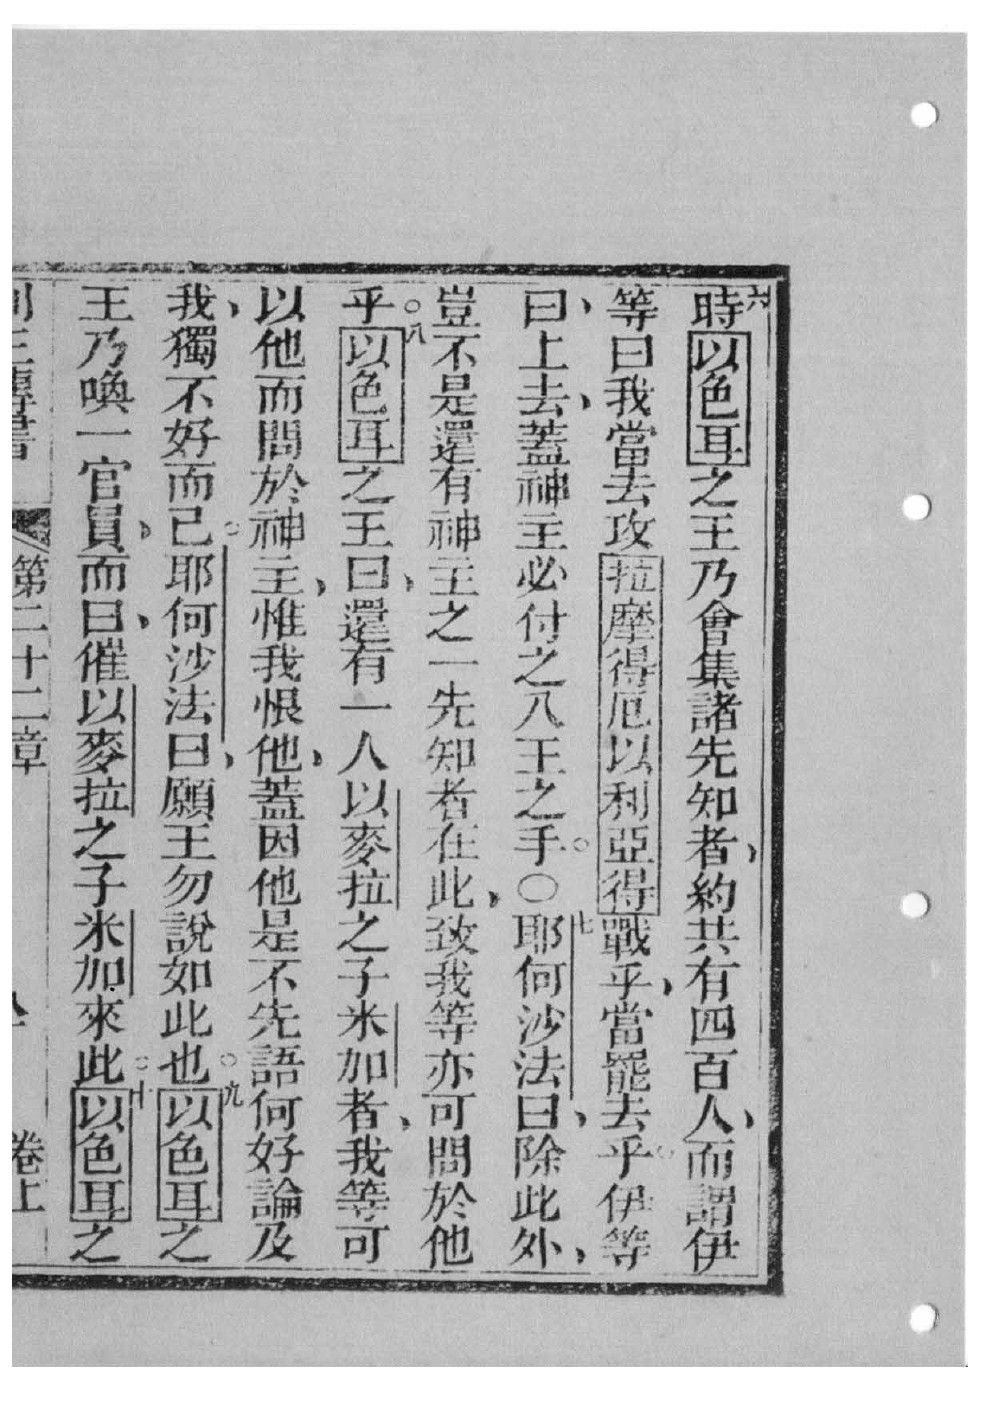 六時以色耳之王乃會集諸先知者、約共有四百人、而謂伊
等曰我當去攻拉摩得厄以利亞得戰乎、當罷去乎。伊等
曰、上去、蓋神主必付之入王之手。○七耶何沙法曰、除此外、
豈不是還有神主之一先知者在此、致我等亦可問於他
乎。八以色耳之王曰、還有一人以麥拉之子米加者、我等可
以他而問於神主、惟我恨他、蓋因他是不先語何好論及
我、獨不好而已。耶何沙法曰、願王勿說如此也。九以色耳之
王乃喚一官員、而曰、催以麥拉之子米加來此。十以色耳之
列王傳書 第二十二章 卷上